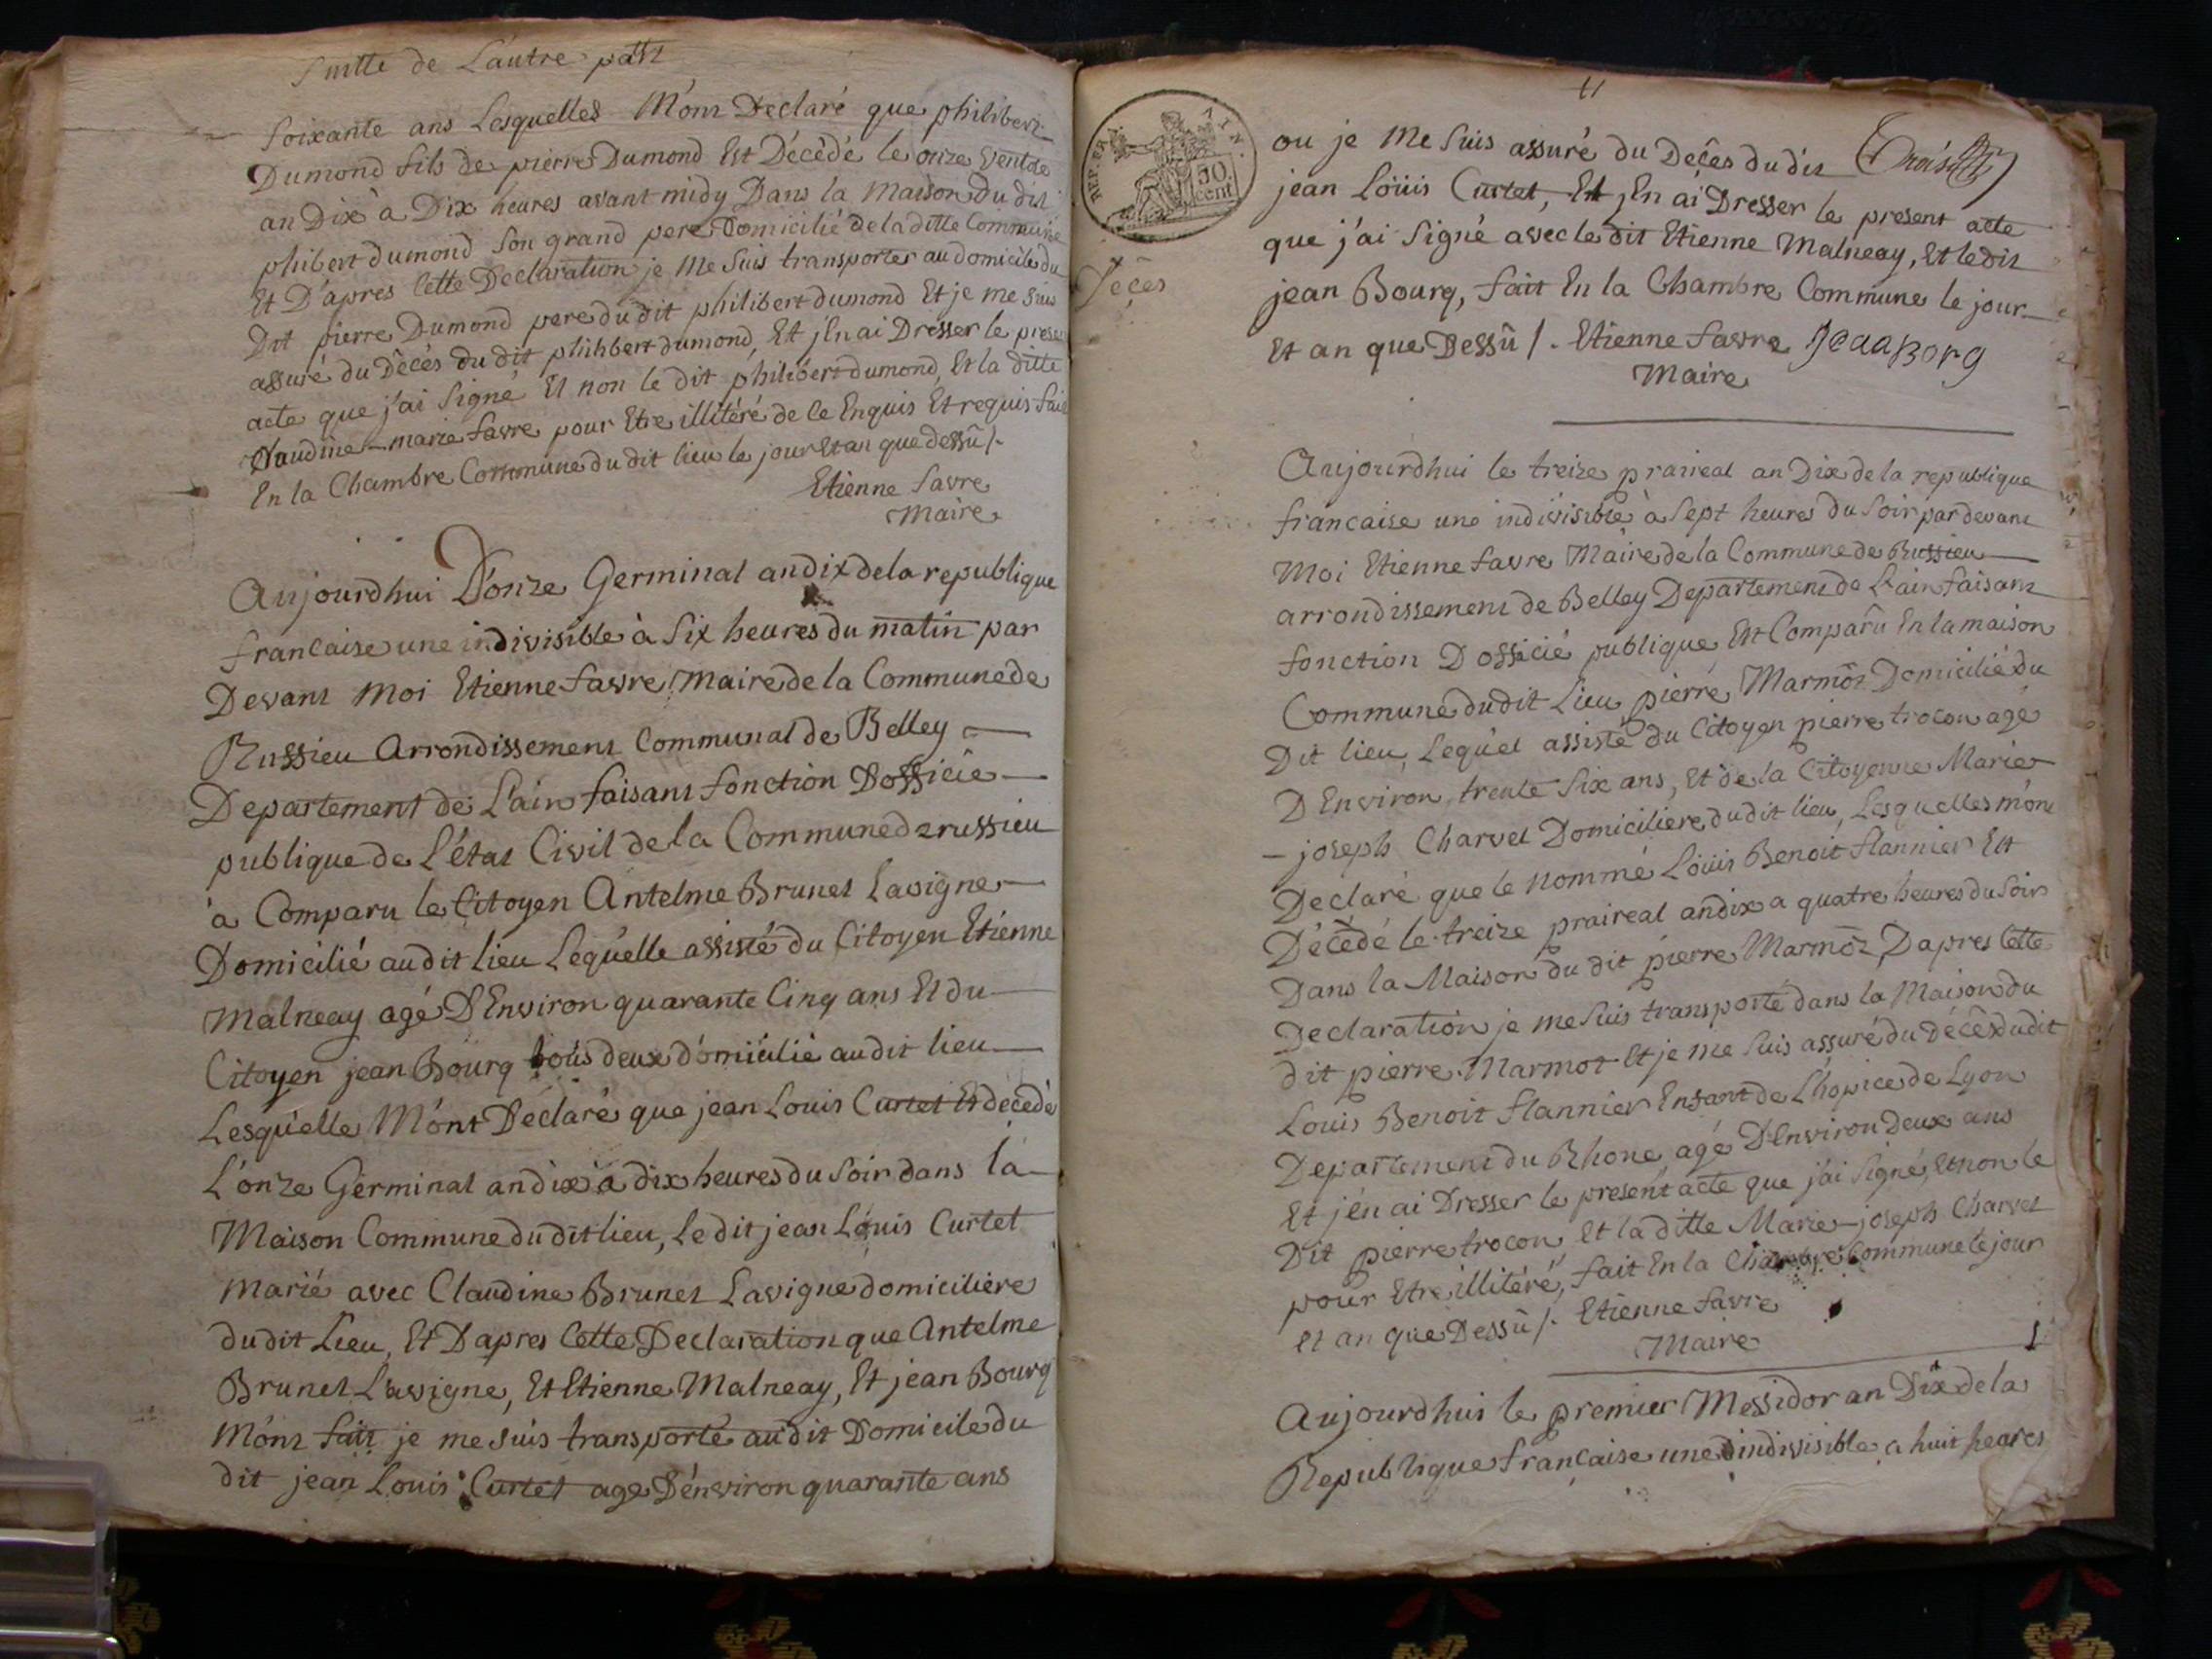 Suitte de L'autre part
Soixante ans Lesquelles M'ont Declaré que philibert
Dumond fils de pierre Dumond Est Décédé le onze ventose
an Dix à Dix heures avant midy Dans la Maison du dit
phibert dumond Son grand pere Domicilié de la ditte Commune
Et D'apres Cette Declaration je Me Suis transporter au domicile du
Dit pierre Dumond pere du dit philibert dumond Et je me Suis
assuré du Décés du dit philibert dumond, Et j'En ai Dresser le presen
acte que j'ai Signé Et non le dit philibert dumond, Et la ditte
Claudine-marie favre pour Etre illitéré de Ce Enquis Et requis fait
En la Chambre Commune du dit lieu le jour Et an que dessû /.
Etienne favre
Maire
Aujourdhui L'onze Germinal an dix de la republique
francaise une indivisible à Six heures du matin par
Devant Moi Etienne favre Maire de la Commune de
Russieu Arrondissement Communal de Belley —
Departement de L'ain faisant fonction D'officié —
publique de L'état Civil de la Commune de russieu
a Comparu le Citoyen Antelme Brunet Lavigne —
Domicilié au dit lieu Lequelle assisté du Citoyen Etienne
Malneay agé D'Environ quarante Cinq ans Et du —
Citoyen jean Bourg tous deux domicilié au dit lieu —
Lesquelle M'ont Déclaré que jean Louis Curtet Et décédé
L'onze Germinal an dix à dix heures du Soir dans la —
Maison Commune du dit lieu, Le dit jean Louis Curtet
Marié avec Claudine Brunet Lavigne domiciliere
du dit Lieu, Et D'apres Cette Declaration que Antelme
Brunet Lavigne, Et Etienne Malneay, Et jean Bourg
M'ont fait je me suis transporté au dit Domicile du
dit jean Louis Curtet age D'énviron quarante ans
11
REP. FRA. AIN.
50 cent
Décés
ou je Me Suis assuré du Decês du dit
jean Loüis Curtet, Et j'En ai Dresser le present acte
que j'ai Signé avec le dit Etienne Malneay, Et le dit
jean Bourg, fait En la Chambre Commune le jour —
Et an que Dessû /. Etienne favre Jeaa Borg
Maire
Aujourdhui le treize praireal an Dix de la republique
francaise une indivisible à Sept heures du Soir par devant
Moi Etienne favre Maire de la Commune de Russieu —
arrondissement de Belley Departement de L'ain faisant
fonction D'officié publique Est Comparû En la maison
Commune du dit Lieu pierre Marmôt Domicilié du
Dit lieu, Lequel assisté du Citoyen pierre trocon agé
D'Environ trente Six ans, Et de la Citoyenne Marie
— joseph Charvet Domiciliere du dit lieu, Lesquelles m'ont
Declaré que le nommé Loüis Benoit flannier Est
Décédé le treize praireal an dix a quatre heures du Soir
Dans la Maison du dit pierre Marmôt, D'apres Cette
Declaration je me Suis transporté dans la Maison du
dit pierre Marmot Et je me Suis assuré du Décês du dit
Louis Benoit flannier Enfant de L'hopice de Lyon
Departement du Rhone, agé D'Environ Deux ans
Et j'en ai Dresser le present acte que j'ai Signé, Et non le
Dit pierre trocon, Et la ditte Marie-joseph Charvet
pour Etre illitéré, fait En la Chambre Commune le jour
et an que Dessû /. Etienne favre
Maire
Aujourdhui le premier Messidor an Dix de la
Republique francaise une indivisible a huit heures